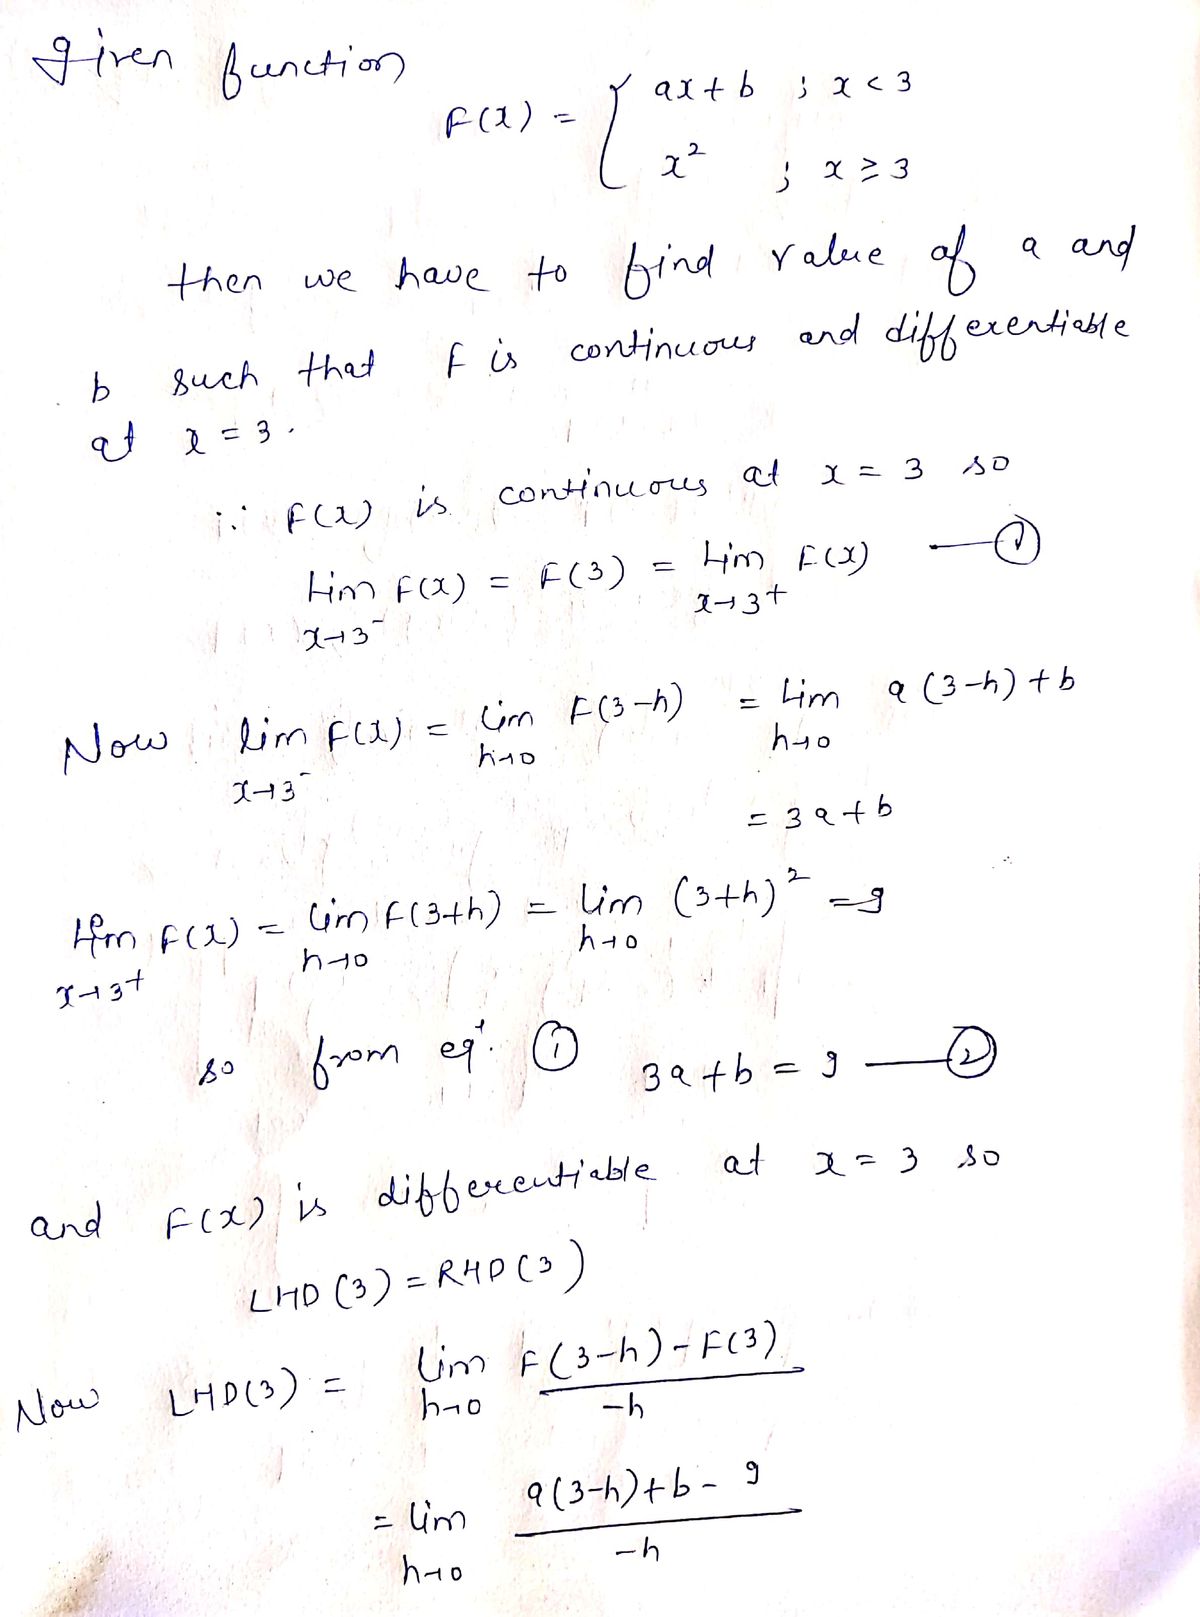 Given function
F(x) = { ax + b ; x < 3
x² ; x ≥ 3
then we have to find value of a and
b such that f is continuous and differentiable
at x = 3.
∵ F(x) is continuous at x = 3 so
Lim F(x) = F(3) = Lim F(x) — ①
x→3⁻ x→3+
Now lim F(x) = Lim F(3-h) = Lim a(3-h) + b
x→3⁻ h→0 h→0
= 3a + b
Lim F(x) = Lim F(3+h) = Lim (3+h)² = 9
x→3+ h→0 h→0
so from eqⁿ. ① 3a + b = 9 — ②
and F(x) is differentiable at x = 3 so
LHD(3) = RHD(3)
Now LHD(3) = Lim F(3-h) - F(3)
h→0 -h
= Lim a(3-h) + b - 9
h→0 -h